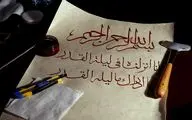 بسم الله الرحمن الرحيم
انا انزلناه في ليلة القدر
وما ادراك ما ليلة القدر